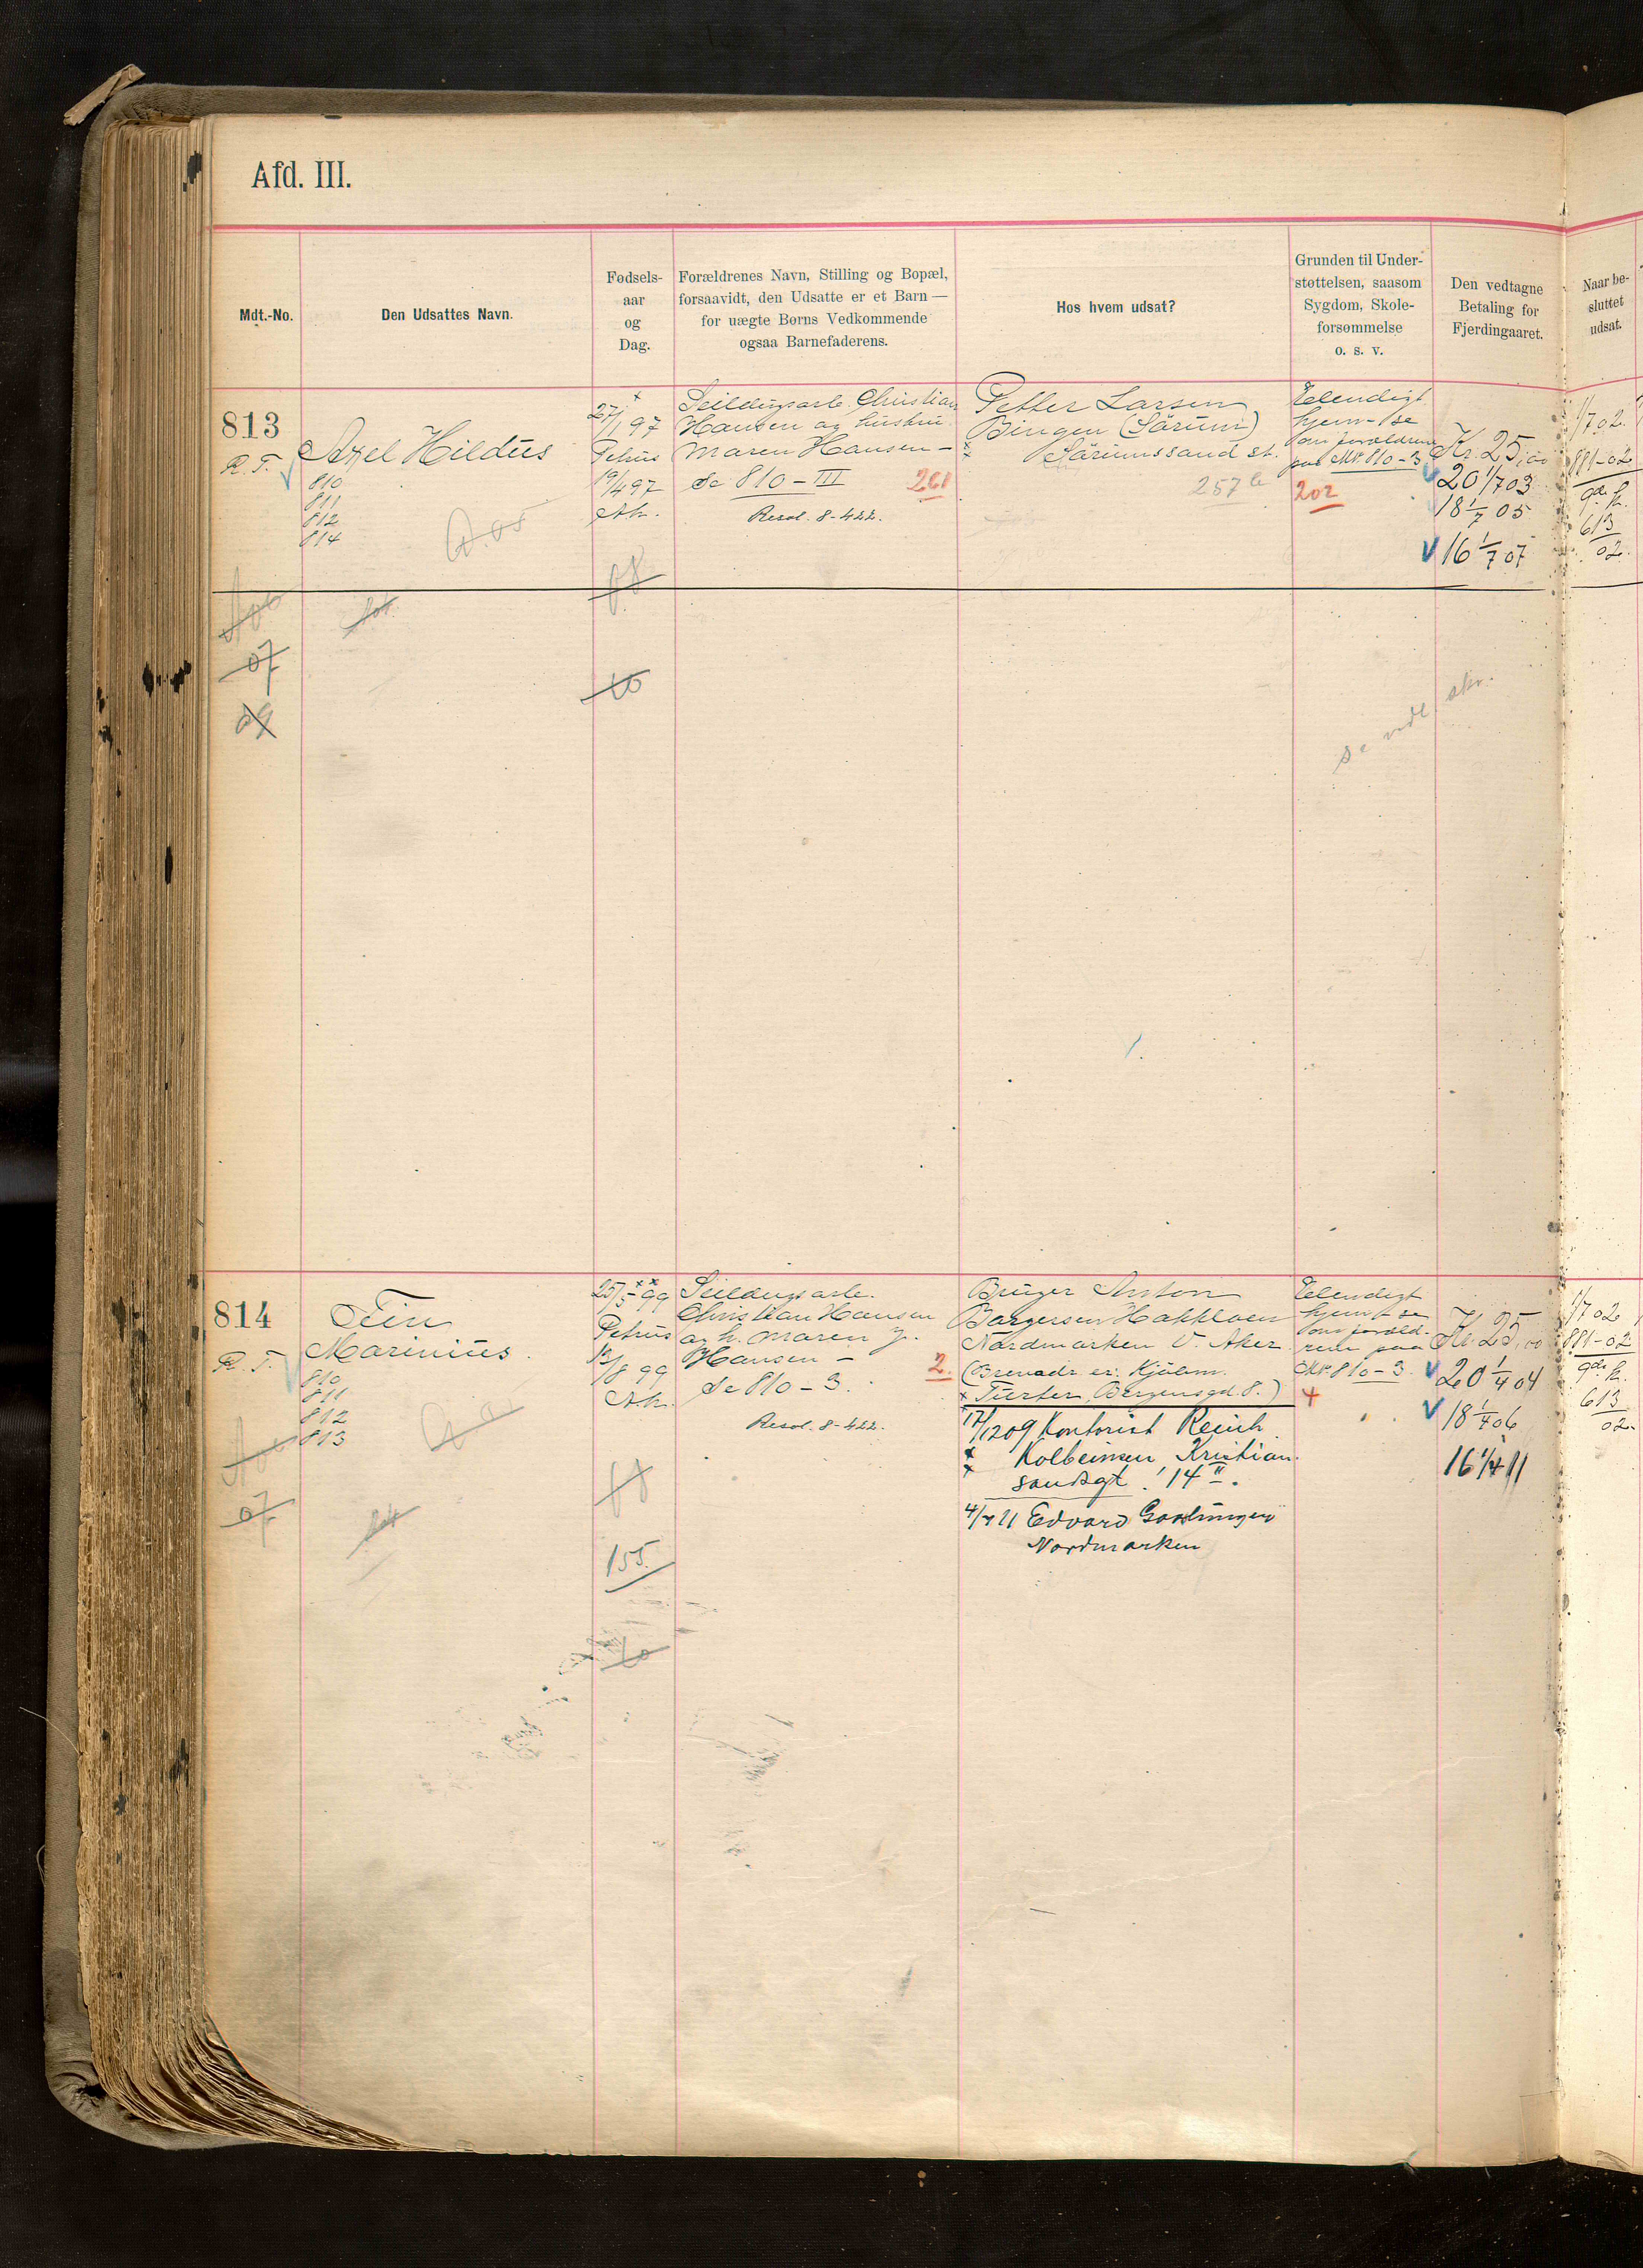 Afd. III.
Mdt.-No.
Den Udsattes Navn.
Fødsels-
aar
og
Dag.
Forældrenes Navn, Stilling og Bopæl,
forsaavidt, den Udsatte er et Barn —
for uægte Børns Vedkommende
ogsaa Barnefaderens.
Hos hvem udsat?
Grunden til Under-
støttelsen, saasom
Sygdom, Skole-
forsømmelse
o. s. v.
Den vedtagne
Betaling for
Fjerdingaaret.
Naar be-
sluttet
udsat.
813
R. T.
Axel Hildus
810
811
812
814
27/1 97
Petrus
19/4 97
Seildugsarb. Christian
Hansen og hustru
Maren Hansen –
Se 810 – III
261
Resol. 8-422.
Petter Larsen
Bingen (Sörum)
Sörumssand st.
257 b
Elendigt
hjem – se
om forældrene
paa Mt. 810 – 3
202
Kr. 25,00
20 1/7 03
18 1/7 05
16 1/7 07
1/7 02.
881-02
613
02.
08
07
09
10
se vedl skr.
814
R. T.
Marinius.
810
811
812
813
25/5 99
Petrus
13/8 99
Seildugsarb.
Christian Hansen
og h. Maren J.
Hansen –
Se 810 – 3.
2.
Resol. 8-422.
Bruger Anton
Borgersen Hakkloen
Nordmarken V. Aker.
(Brevadr. er: Kjöbm.
Furter, Bergensgd. 8.)
17/12 09 Kontorist Reich
Kolbeinsen, Kristian
sandsgt. 14 II.
4/4 11 Edvard
Nordmarken
Elendigt
hjem – se
om foræld-
rene paa
Mt. 810 – 3.
4
Kr. 25,00
20 1/4 04
18 1/4 06
16 1/4 11
1/7 02
881-02
613
02.
07
08
155
10